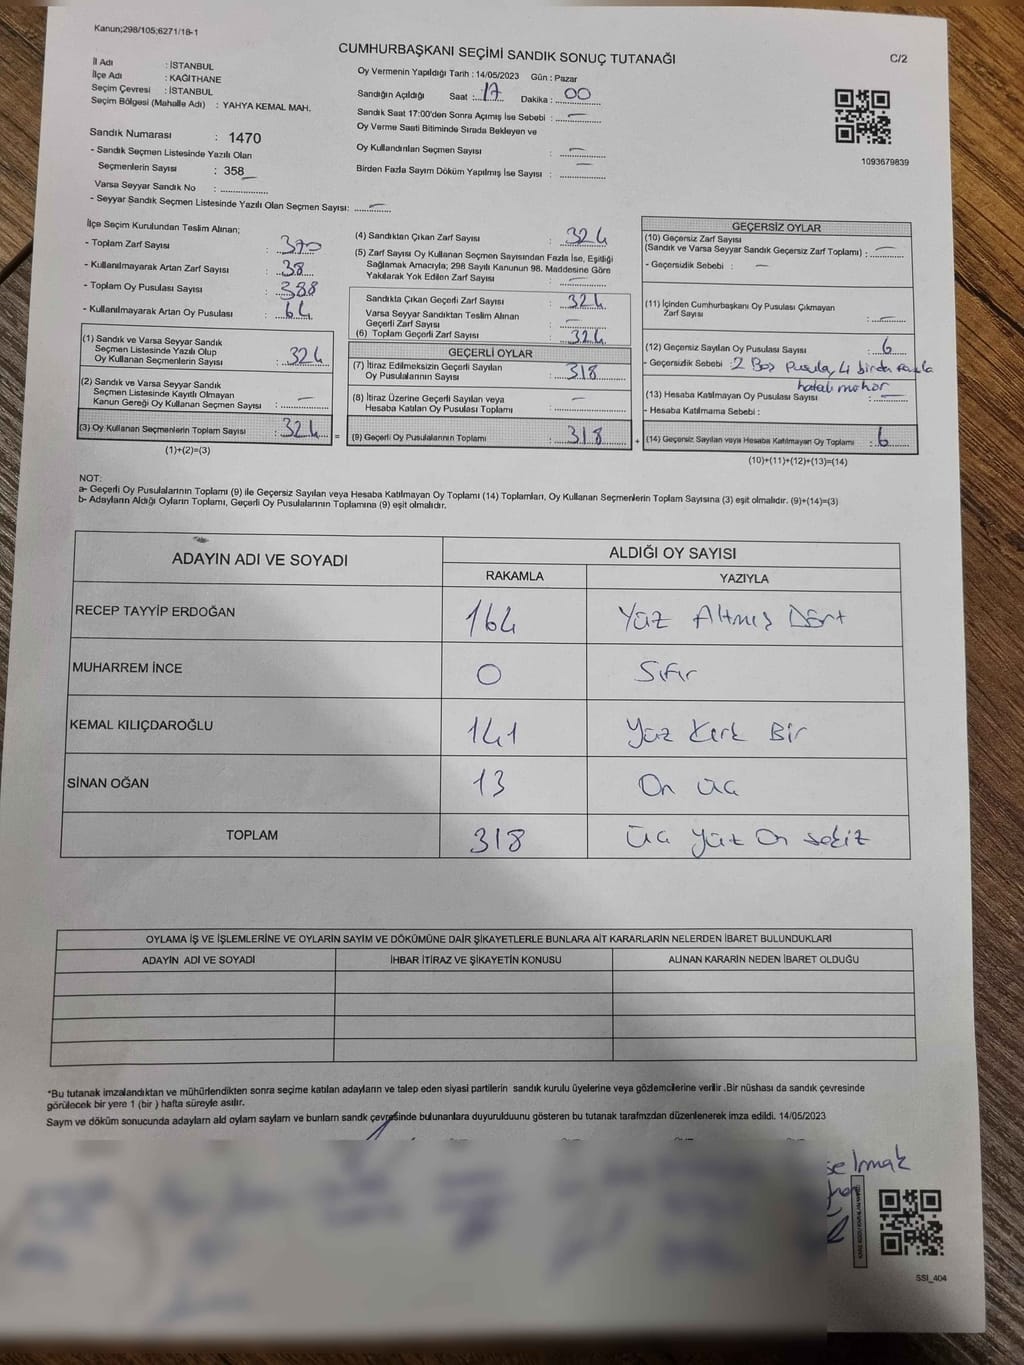 Kanun;298/105;6271/18-1
CUMHURBAŞKANI SEÇİMİ SANDIK SONUÇ TUTANAĞI
C/2
İl Adı : İSTANBUL
İlçe Adı : KAĞITHANE
Seçim Çevresi : İSTANBUL
Seçim Bölgesi (Mahalle Adı) : YAHYA KEMAL MAH.
Sandık Numarası : 1470
- Sandık Seçmen Listesinde Yazılı Olan
Seçmenlerin Sayısı : 358
Varsa Seyyar Sandık No :
- Seyyar Sandık Seçmen Listesinde Yazılı Olan Seçmen Sayısı: —
Oy Vermenin Yapıldığı Tarih : 14/05/2023 Gün : Pazar
Sandığın Açıldığı Saat : 17 Dakika : 00
Sandık Saat 17:00'den Sonra Açımış İse Sebebi : —
Oy Verme Saati Bitiminde Sırada Bekleyen ve
Oy Kullandırılan Seçmen Sayısı : —
Birden Fazla Sayım Döküm Yapılmış İse Sayısı : —
1093679839
İlçe Seçim Kurulundan Teslim Alınan;
- Toplam Zarf Sayısı : 370
- Kullanılmayarak Artan Zarf Sayısı : 38
- Toplam Oy Pusulası Sayısı : 388
- Kullanılmayarak Artan Oy Pusulası : 64
(1) Sandık ve Varsa Seyyar Sandık
Seçmen Listesinde Yazılı Olup
Oy Kullanan Seçmenlerin Sayısı : 324
(2) Sandık ve Varsa Seyyar Sandık
Seçmen Listesinde Kayıtlı Olmayan
Kanun Gereği Oy Kullanan Seçmen Sayısı : —
(3) Oy Kullanan Seçmenlerin Toplam Sayısı : 324 =
(1)+(2)=(3)
(4) Sandıktan Çıkan Zarf Sayısı : 324
(5) Zarf Sayısı Oy Kullanan Seçmen Sayısından Fazla İse, Eşitliği
Sağlamak Amacıyla; 298 Sayılı Kanunun 98. Maddesine Göre
Yakılarak Yok Edilen Zarf Sayısı : —
Sandıkta Çıkan Geçerli Zarf Sayısı : 324
Varsa Seyyar Sandıktan Teslim Alınan
Geçerli Zarf Sayısı : —
(6) Toplam Geçerli Zarf Sayısı : 324
GEÇERLİ OYLAR
(7) İtiraz Edilmeksizin Geçerli Sayılan
Oy Pusulalarının Sayısı : 318
(8) İtiraz Üzerine Geçerli Sayılan veya
Hesaba Katılan Oy Pusulası Toplamı : —
(9) Geçerli Oy Pusulalarının Toplamı : 318 +
GEÇERSİZ OYLAR
(10) Geçersiz Zarf Sayısı
(Sandık ve Varsa Seyyar Sandık Geçersiz Zarf Toplamı) : —
- Geçersizlik Sebebi : —
(11) İçinden Cumhurbaşkanı Oy Pusulası Çıkmayan
Zarf Sayısı : —
(12) Geçersiz Sayılan Oy Pusulası Sayısı : 6
- Geçersizlik Sebebi : 2 Boş Pusula, 4 birden fazla
hatalı mühür
(13) Hesaba Katılmayan Oy Pusulası Sayısı : —
- Hesaba Katılmama Sebebi :
(14) Geçersiz Sayılan veya Hesaba Katılmayan Oy Toplamı : 6
(10)+(11)+(12)+(13)=(14)
NOT:
a- Geçerli Oy Pusulalarının Toplamı (9) ile Geçersiz Sayılan veya Hesaba Katılmayan Oy Toplamı (14) Toplamları, Oy Kullanan Seçmenlerin Toplam Sayısına (3) eşit olmalıdır. (9)+(14)=(3)
b- Adayların Aldığı Oyların Toplamı, Geçerli Oy Pusulalarının Toplamına (9) eşit olmalıdır.
ADAYIN ADI VE SOYADI
ALDIĞI OY SAYISI
RAKAMLA YAZIYLA
RECEP TAYYİP ERDOĞAN 164 Yüz Altmış Dört
MUHARREM İNCE 0 Sıfır
KEMAL KILIÇDAROĞLU 141 Yüz Kırk Bir
SİNAN OĞAN 13 On üç
TOPLAM 318 Üç yüz On sekiz
OYLAMA İŞ VE İŞLEMLERİNE VE OYLARIN SAYIM VE DÖKÜMÜNE DAİR ŞİKAYETLERLE BUNLARA AİT KARARLARIN NELERDEN İBARET BULUNDUKLARI
ADAYIN ADI VE SOYADI İHBAR İTİRAZ VE ŞİKAYETİN KONUSU ALINAN KARARIN NEDEN İBARET OLDUĞU
*Bu tutanak imzalandıktan ve mühürlendikten sonra seçime katılan adayların ve talep eden siyasi partilerin sandık kurulu üyelerine veya gözlemcilerine verilir .Bir nüshası da sandık çevresinde
görülecek bir yere 1 (bir ) hafta süreyle asılır.
Sayım ve döküm sonucunda adayların ald oyların sayların ve bunların sandk çevresinde bulunanlara duyurulduunu gösteren bu tutanak tarafmzdan düzenlenerek imza edildi. 14/05/2023
Irmak
SSI_404